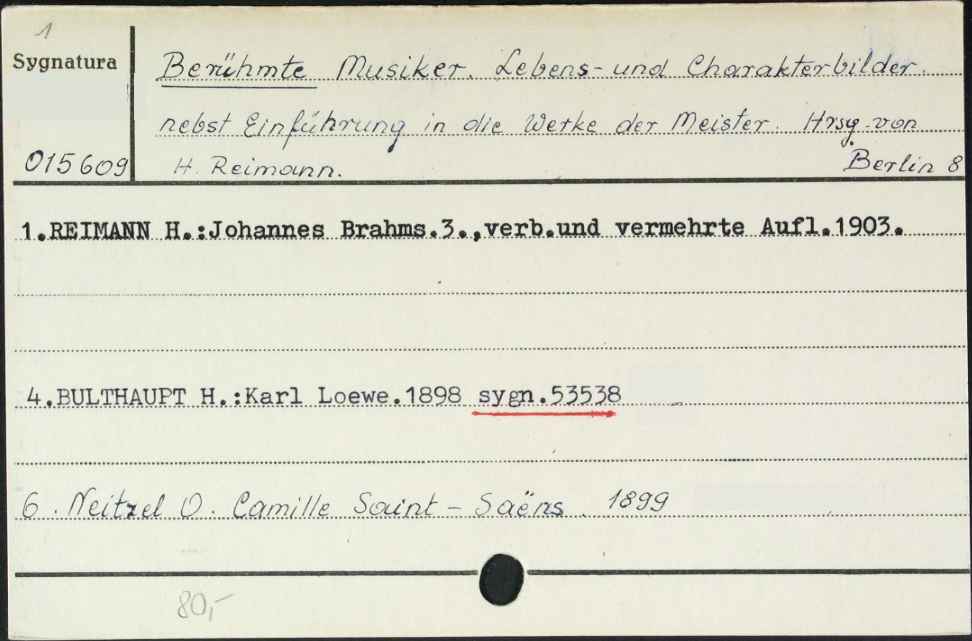 1
Sygnatura
Berühmte Musiker. Lebens- und Charakterbilder
nebst Einführung in die Werke der Meister. Hrsg. von
015609 H. Reimann. Berlin 8
1.REIMANN H.:Johannes Brahms.3.,verb.und vermehrte Aufl.1903.
4.BULTHAUPT H.:Karl Loewe.1898 sygn.53538
6. Neitzel O. Camille Saint-Saëns. 1899
80,-